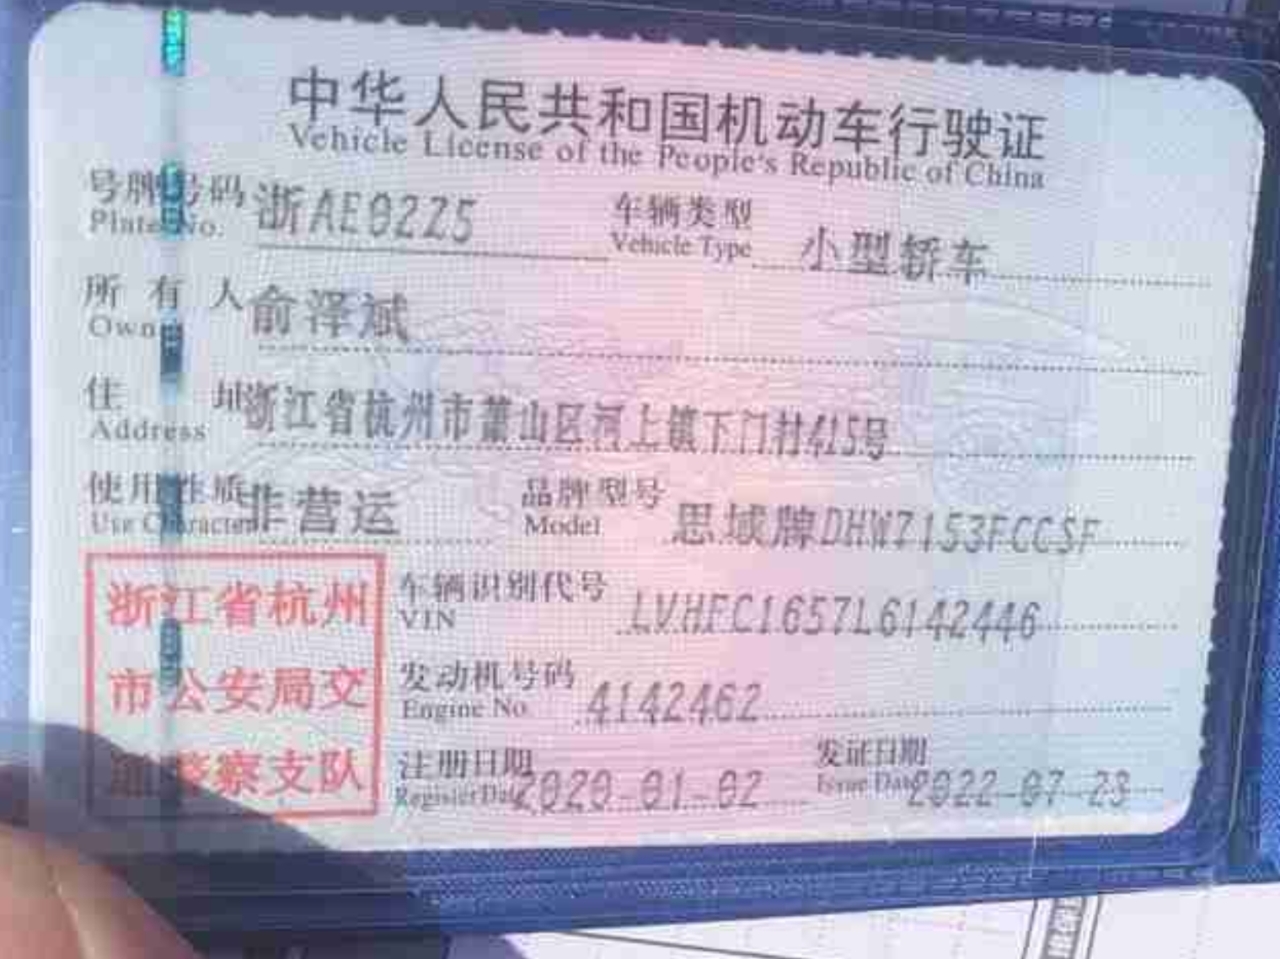 中华人民共和国机动车行驶证
Vehicle License of the People's Republic of China
号牌号码 浙AE02Z5 车辆类型 小型轿车
Plate No. Vehicle Type
所有人 俞泽斌
Owner
住址 浙江省杭州市萧山区河上镇下门村415号
Address
使用性质 非营运 品牌型号 思域牌DHW7153FCCSF
Use Character Model
浙江省杭州
市公安局交
通警察支队
车辆识别代号 LVHFC1657L6142446
VIN
发动机号码 4142462
Engine No.
注册日期 2020-01-02 发证日期 2022-07-23
Register Date Issue Date